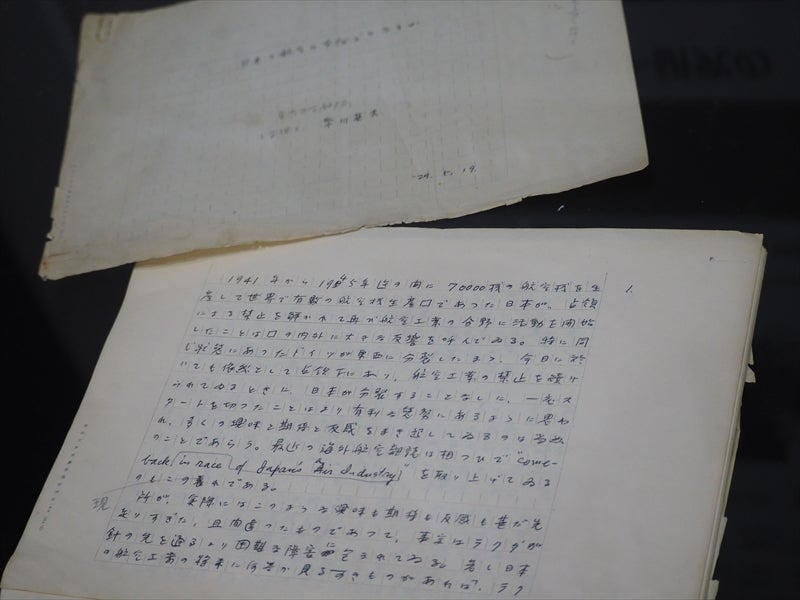 29. 5. 19.
1.
1941年から1945年迄の間に70000機の航空機を生
産して世界で有数の航空機生産国であった日本が、占領
による禁止を解かれて再び航空工業の分野に活動を開始
したことは国の内外に大きな反響を呼んでゐる。特に同
じ状態にあったドイツが東西に分裂したまゝ、今日に於
いても依然として占領下にあり、航空工業の禁止を続け
られてゐるときに、日本が分裂することなしに、一応ス
タートを切ったことはより有利な態勢にあるように思わ
れ、多くの興味と期待と反感をまき起してゐるのは当然
のことであらう。最近の海外航空雑誌は相ついで "come-
back in race of Japan's Air Industry" を取り上げてゐる
のもこの表れである。
現
所が、実際にはこのような興味も期待も反感も甚だ先
走りすぎた、且間違ったものであって、事実はラクダが
針の穴を通るより困難な障害に包まれてゐる。若し日本
の航空工業の将来に何等か見るべきものがあれば、ラク